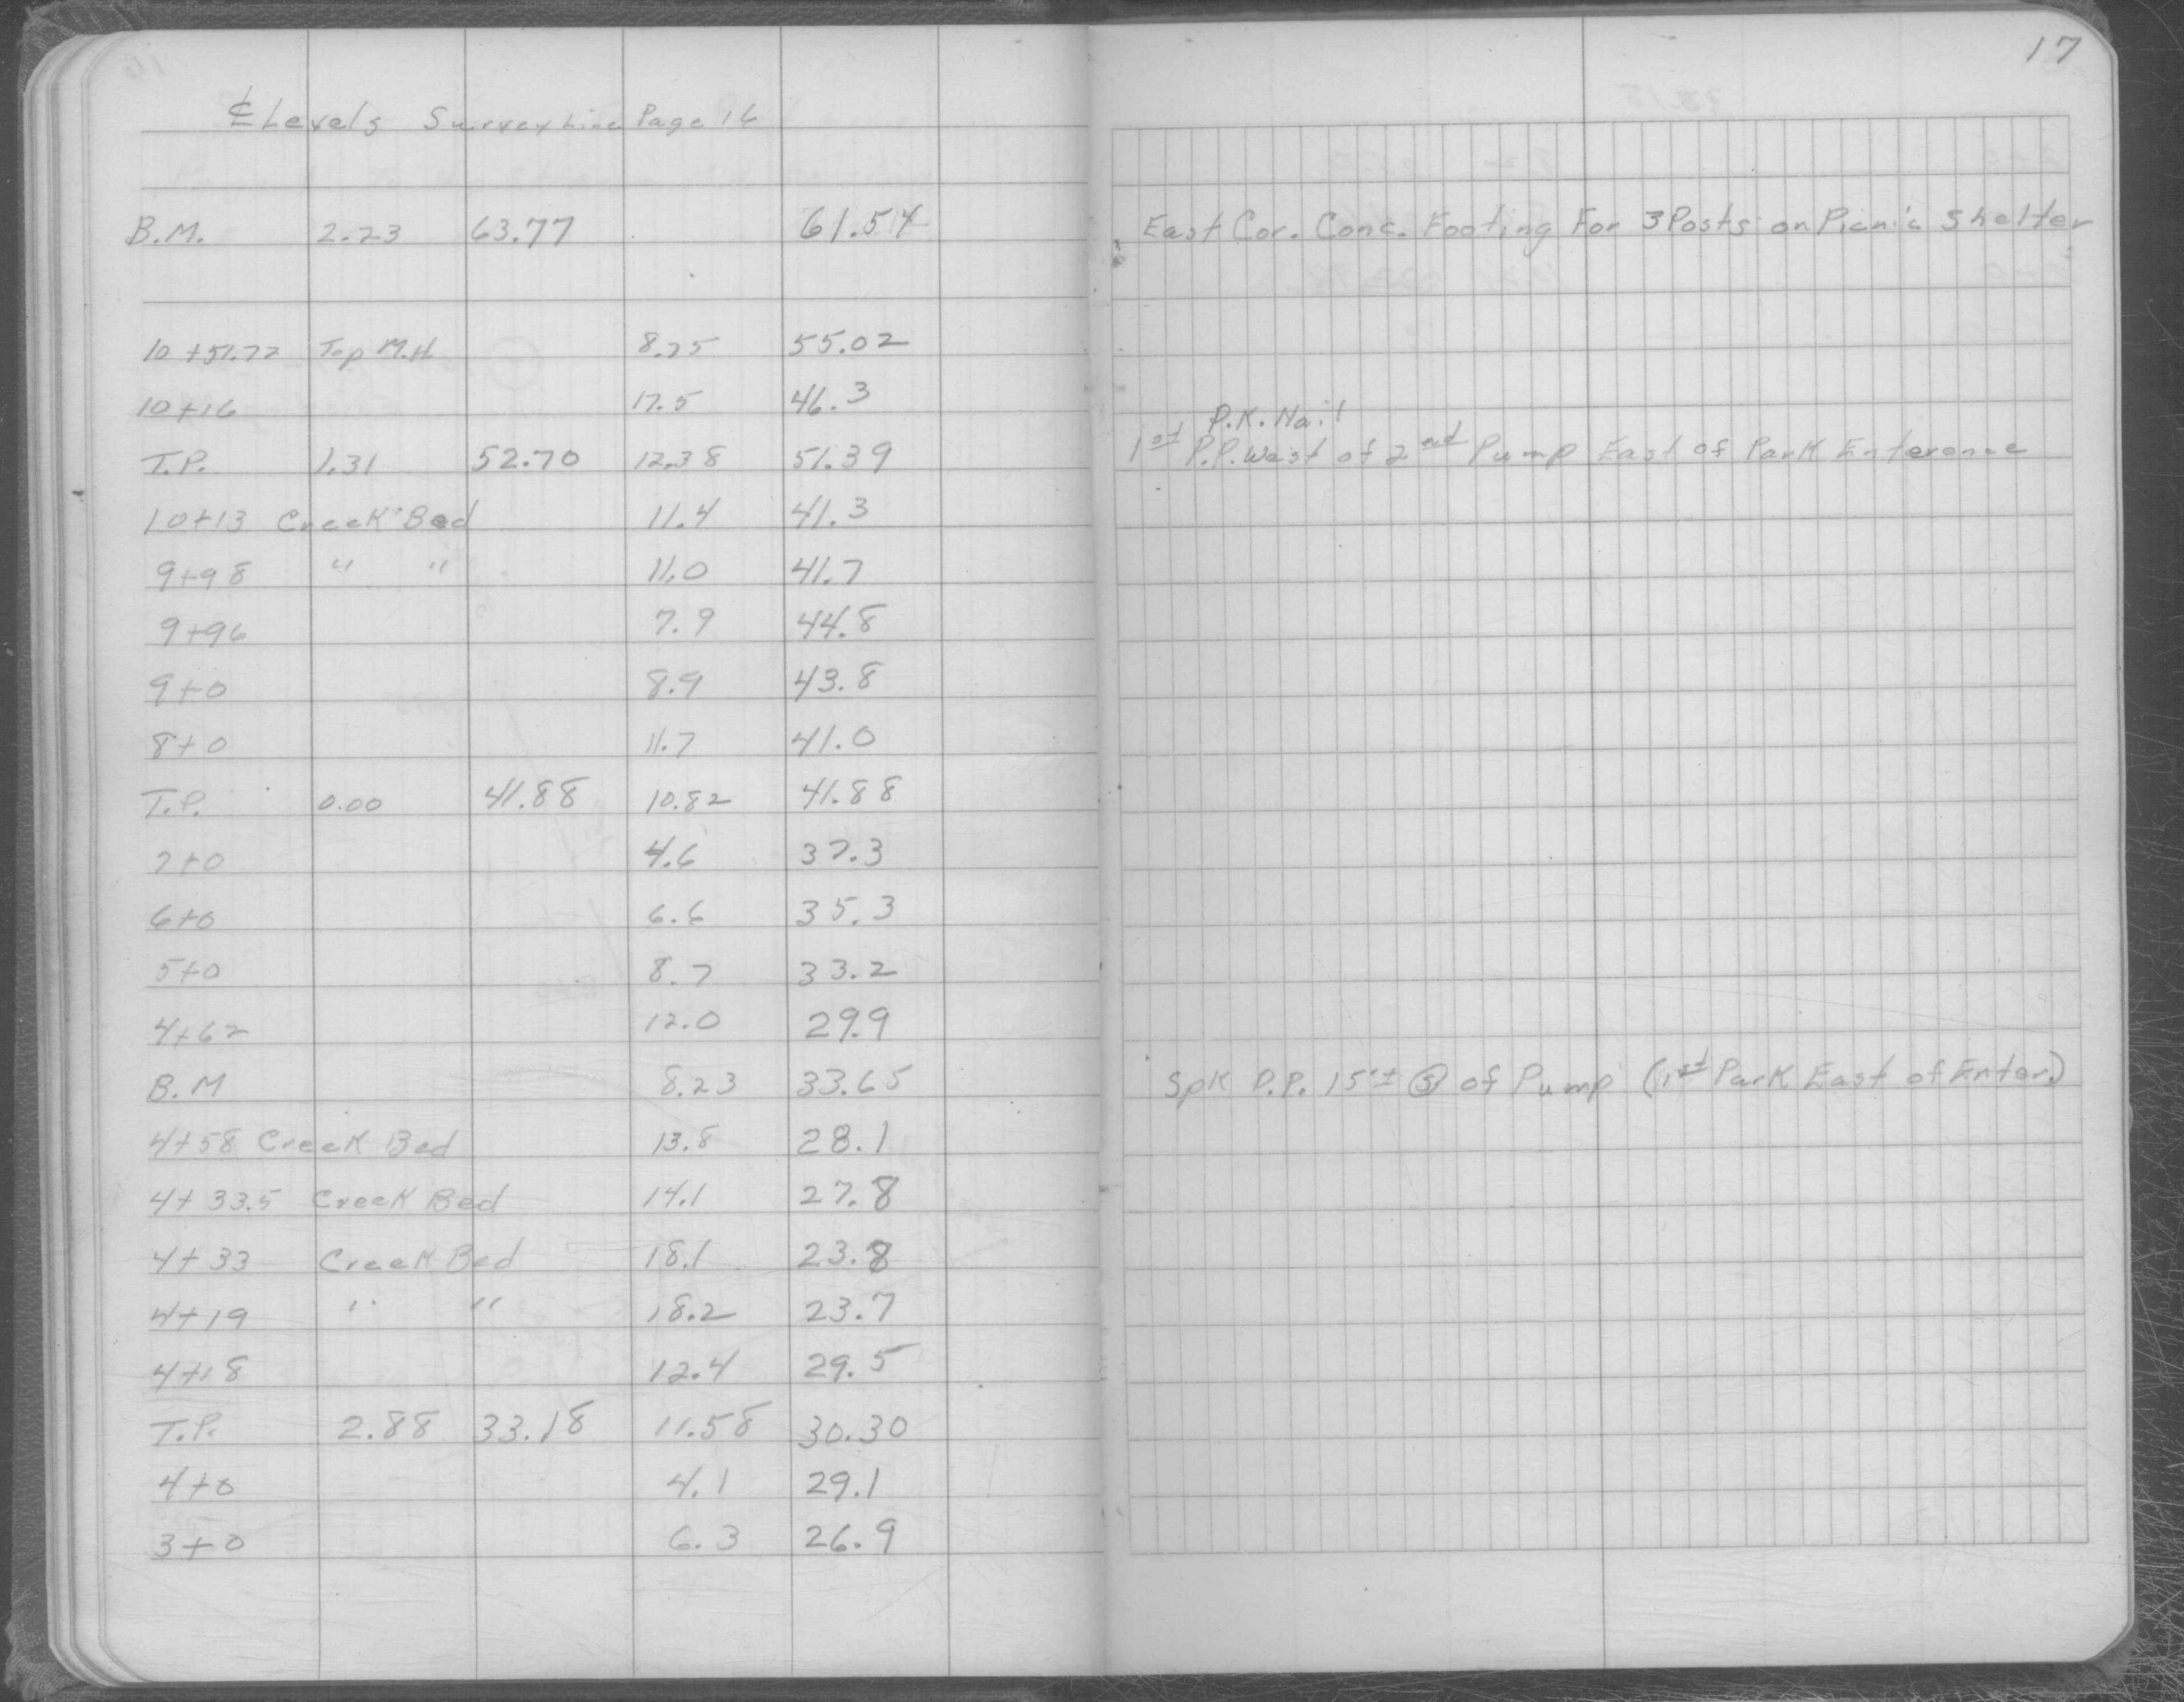 17
℄ Levels Survey Line Page 16
B.M. 2.23 63.77 61.54 East Cor. Conc. Footing For 3 Posts on Picnic Shelter
10+51.72 Top M.H. 8.75 55.02
10+16 17.5 46.3
P.K. Nail
T.P. 1.31 52.70 12.38 51.39 1st P.P. West of 2nd Pump East of Park Enterence
10+13 Creek Bed 11.4 41.3
9+98 " " 11.0 41.7
9+96 7.9 44.8
9+0 8.9 43.8
8+0 11.7 41.0
T.P. 0.00 41.88 10.82 41.88
7+0 4.6 37.3
6+0 6.6 35.3
5+0 8.7 33.2
4+62 12.0 29.9
B.M 8.23 33.65 Spk P.P. 15'± Ⓢ of Pump (1st Park East of Enter.)
4+58 Creek Bed 13.8 28.1
4+33.5 Creek Bed 14.1 27.8
4+33 Creek Bed 18.1 23.8
4+19 " " 18.2 23.7
4+18 12.4 29.5
T.P. 2.88 33.18 11.58 30.30
4+0 4.1 29.1
3+0 6.3 26.9